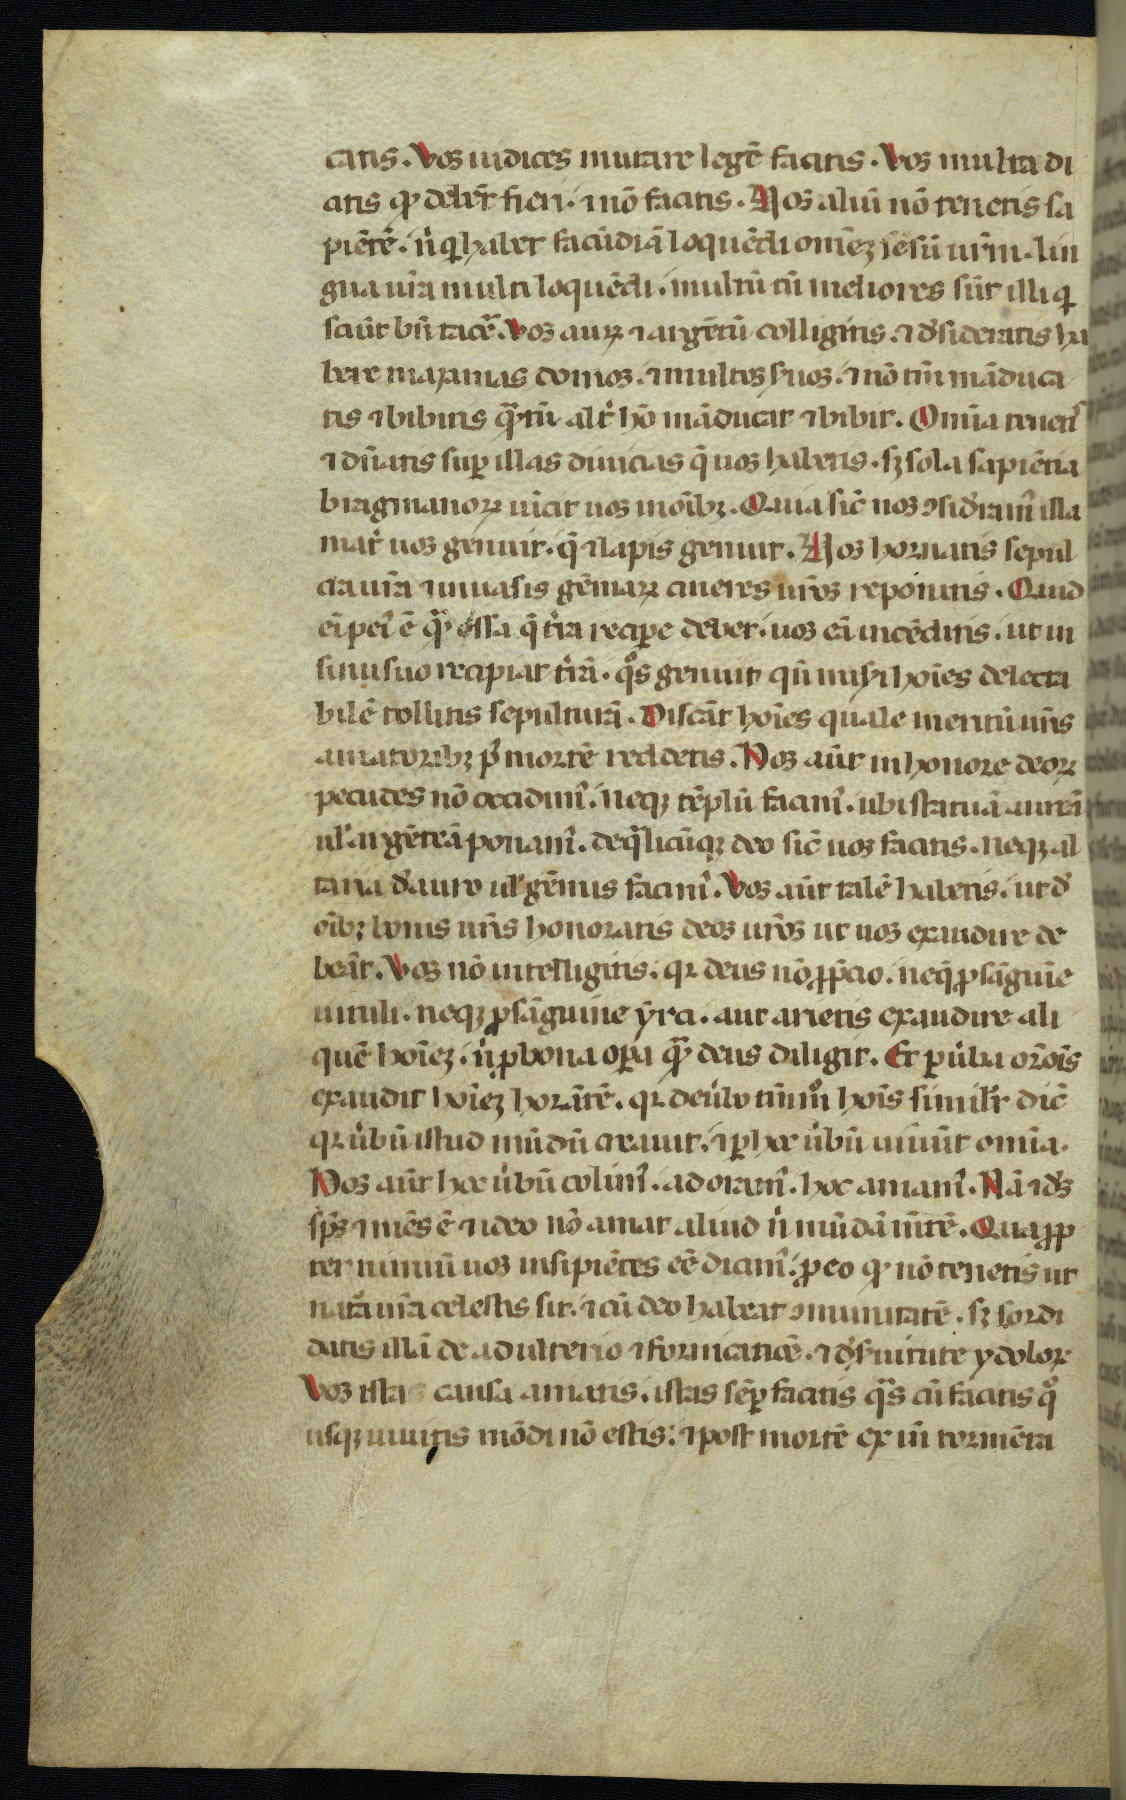 catis. Vos iudices mutare legē facitis. Vos multa di
atis qd debēt fieri. ⁊ nō facitis. Nos aliū nō tenetis sa
piētē. n̄ q habet facūdiā loquēdi omēz sēsū ur̄m. lin
gua ur̄a multi loquēdi. multū tn̄ meliores sūt illi q
sciūt bn̄ tacē. Vos auꝝ ⁊ argētū colligitis. ⁊ d̓sideratis ha
bere maximas domos. ⁊ multos s̓uos. ⁊ nō tm̄ māduca
tis ⁊ bibitis qᵃtū alt̓ hō māducat ⁊ bibit. Omīa tenet̓
⁊ dn̄atis suꝑ illas diuicias q̄ uos habetis. sꝫ sola sapiētia
bragmanoꝝ uīcit uos ī oībꝫ. Quia sic̄ nos ꝯsid̓am̓ illa
mat̓ uos genuit. q̄ ⁊ lapis genuit. Uos hornatis sepul
cra ur̄a ⁊ in uasis gēmaꝝ cineres ur̄os reponitis. Quid
eī pei̓ ē qᵃ ossa q̄ t̓ra recipe debet. uos eā incēditis. ut in
sinu suo recipiat t̓rā. qᵒs genuit qn̄ mis̓i hoīes delecta
bilē tollitis sepulturā. Discāt hoīes quale meritū ur̄is
amatoribꝫ p̓ mortē redderis. Nos aūt in honore deoꝝ
pecudes nō occidim̓. neqꝫ tēplū facim̓. ubi statuā aureā
ul̓ argēteā ponam̓. de qᵃlicūqꝫ deo sic̄ uos facitis. neqꝫ al
taria d̓ auro ul̓ gēmis facim̓. Vos aūt talē habetis. ut d̓
oībꝫ bonis ur̄is honoratis deos ur̄os ut uos exaudire de
beāt. Vos nō intelligitis. qꝛ deus nō ꝓ p̄cio. neqꝫ ꝓ sāguīe
uituli. neqꝫ ꝓ sāguine yrci. aut arietis exaudire ali
quē hoīez. n̄ ꝑ bona oꝑa qᵃ deus diligit. Et ꝑ u̓ba orōis
exaudit hoīez horātē. qꝛ de u̓bo tm̄mᵒ hoīs simil̓r dic̄
qꝛ u̓bū istud mūdū creauit. ⁊ ꝑ hoc u̓bū uiuūt omīa.
Nos aūt hoc u̓bū colim̓. adoram̓. hoc amam̓. Nā ⁊ ds̓
sp̄s ⁊ mēs ē ⁊ ideo nō amat aliud n̄ mūdā mētē. Quaꝓp
ter nimiū uos insipiētes eē dicim̓. ꝓ eo qd nō tenetis ut
natᵃ ur̄a celestis sit. ⁊ cū deo habeat ꝯmunitatē. sꝫ sordi
datis illā de adulterio ⁊ fornicatiōe. ⁊ d̓ s̓uitute ydoloꝝ
Vos ista causa amatis. istas sēꝑ facitis qᵃs cū facitis qᵒ
usqꝫ uiuitis mōdi nō estis: ⁊ post mortē ex īn tormēta